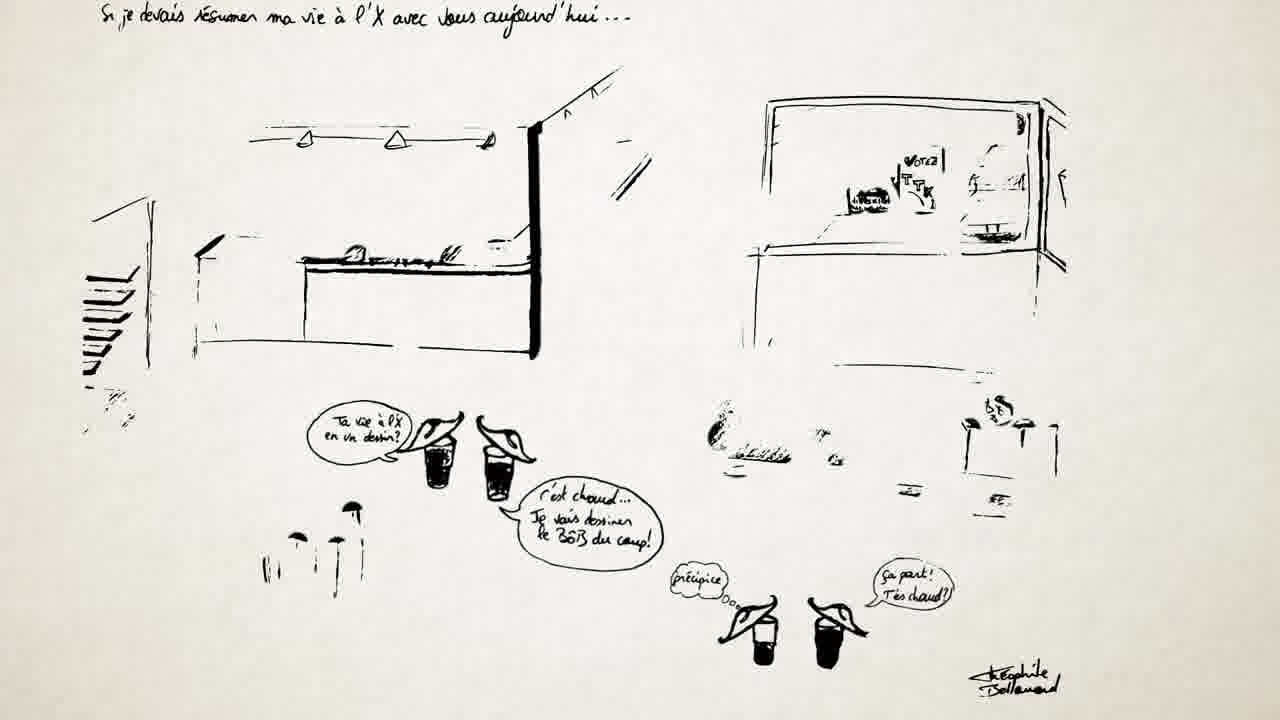 Si je devais résumer ma vie à l'X avec vous aujourd'hui...
VOTEZ
TTK
Ta vie à l'X
en un dessin?
c'est chaud...
Je vais dessiner
le BôB du coup!
précipice
ça part!
T'es chaud?
Théophile